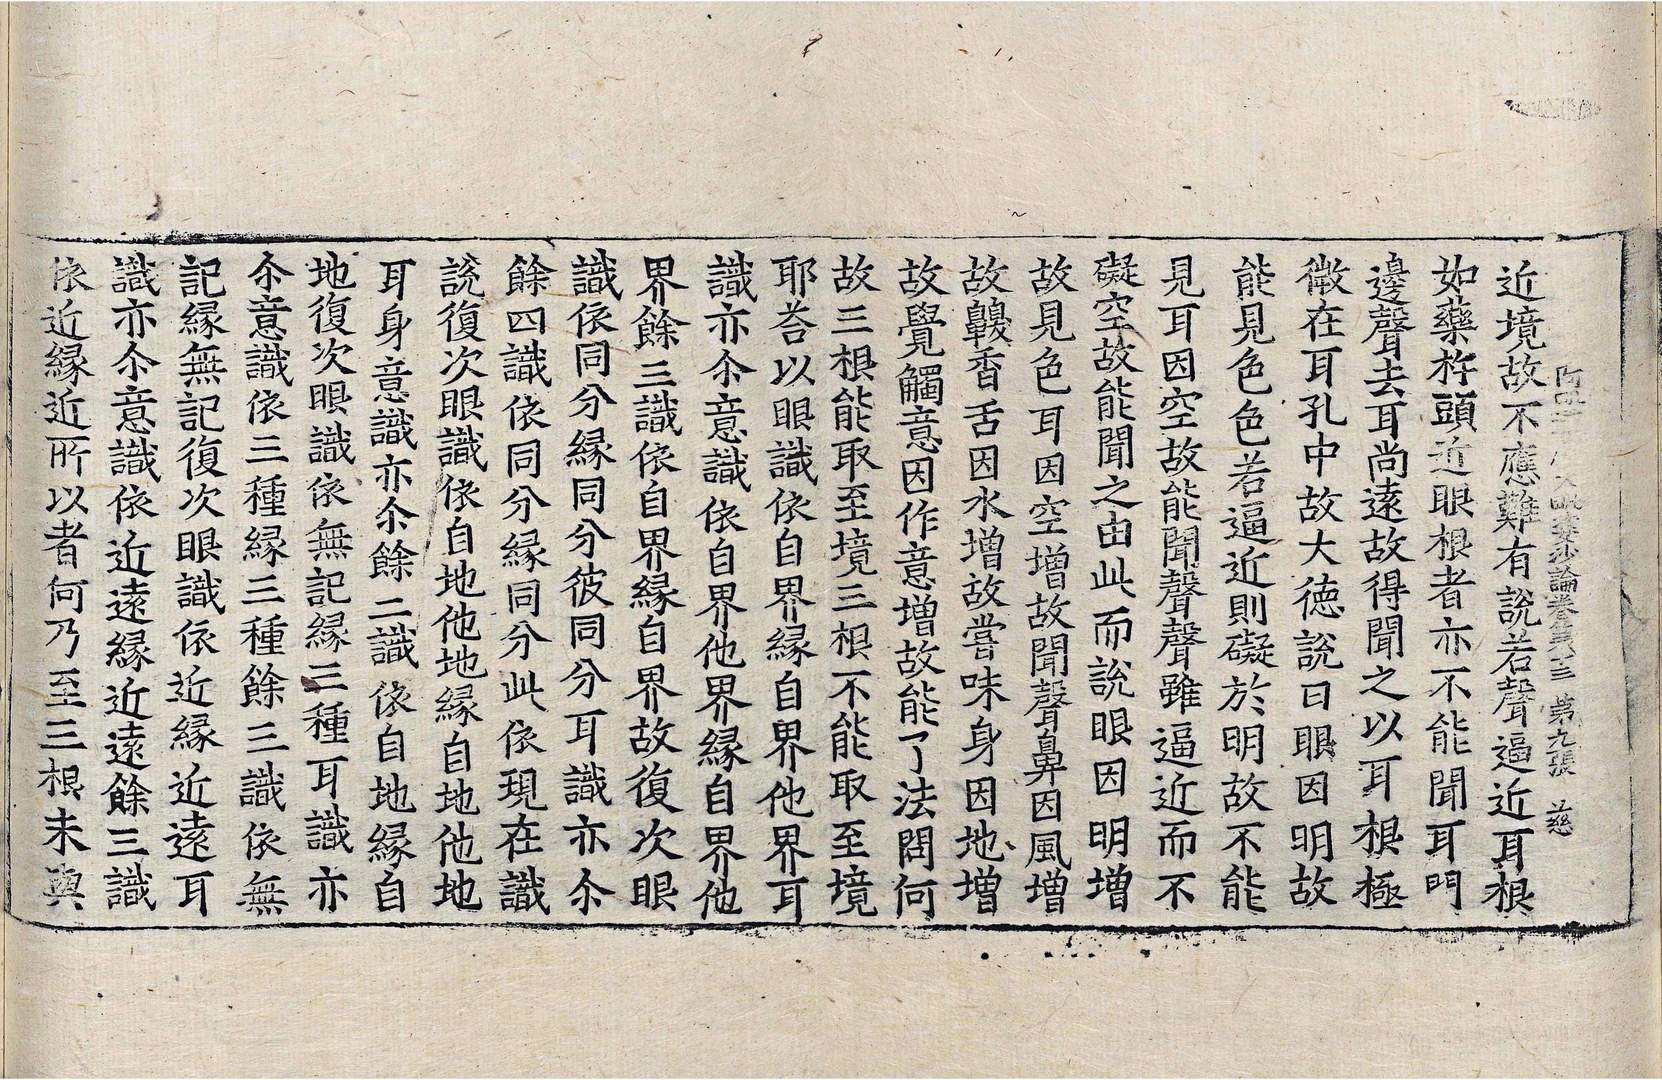 大毗婆沙論卷 第九張 慈
近境故不應難有說若聲逼近耳根
如藥杵頭近眼根者亦不能聞耳門
邊聲去耳尚遠故得聞之以耳根極
微在耳孔中故大德說曰眼因明故
能見色色若逼近則礙於明故不能
見耳因空故能聞聲聲雖逼近而不
礙空故能聞之由此而說眼因明增
故見色耳因空增故聞聲鼻因風增
故齅香舌因水增故嘗味身因地增
故覺觸意因作意增故能了法問何
故三根能取至境三根不能取至境
耶荅以眼識依自界緣自界他界耳
識亦尒意識依自界他界緣自界他
界餘三識依自界緣自界故復次眼
識依同分緣同分彼同分耳識亦尒
餘四識依同分緣同分此依現在識
說復次眼識依自地他地緣自地他地
耳身意識亦尒餘二識依自地緣自
地復次眼識依無記緣三種耳識亦
尒意識依三種緣三種餘三識依無
記緣無記復次眼識依近緣近遠耳
識亦尒意識依近遠緣近遠餘三識
依近緣近所以者何乃至三根未與